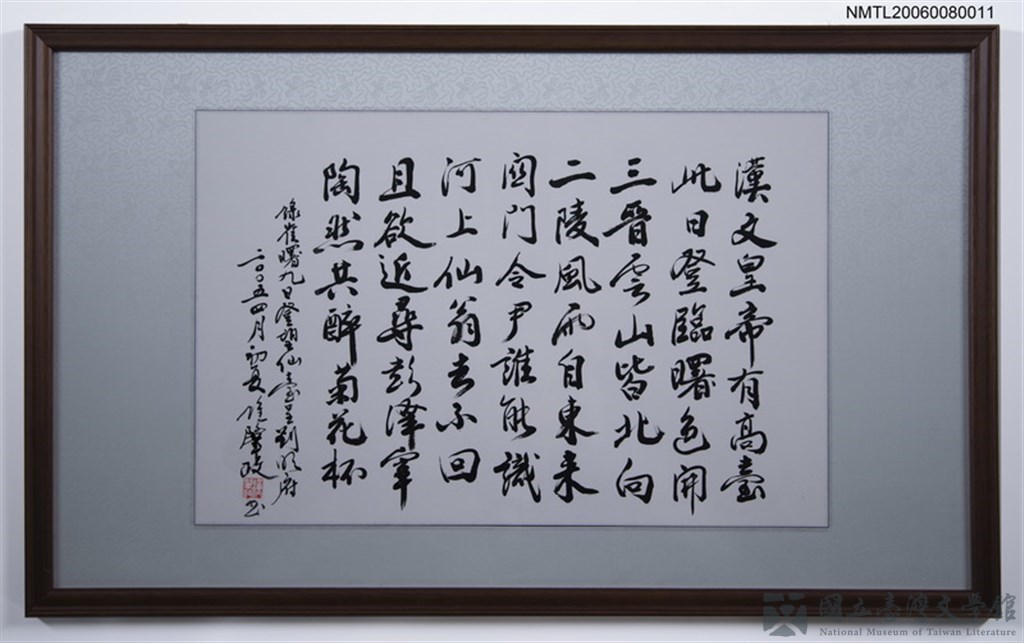 NMTL20060080011
漢文皇帝有高臺
此日登臨曙色開
三晉雲山皆北向
二陵風雨自東來
關門令尹誰能識
河上仙翁去不回
且欲近尋彭澤宰
陶然共醉菊花杯
錄崔曙九日登望仙臺呈劉明府
二〇〇五四月初夏 隱肇政書
國立臺灣文學館
National Museum of Taiwan Literature